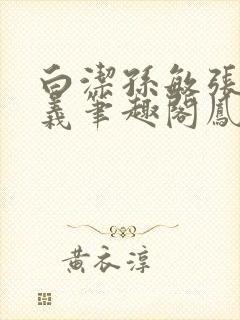 白潔孫敏張
義筆趣閣鳳
黃衣淳